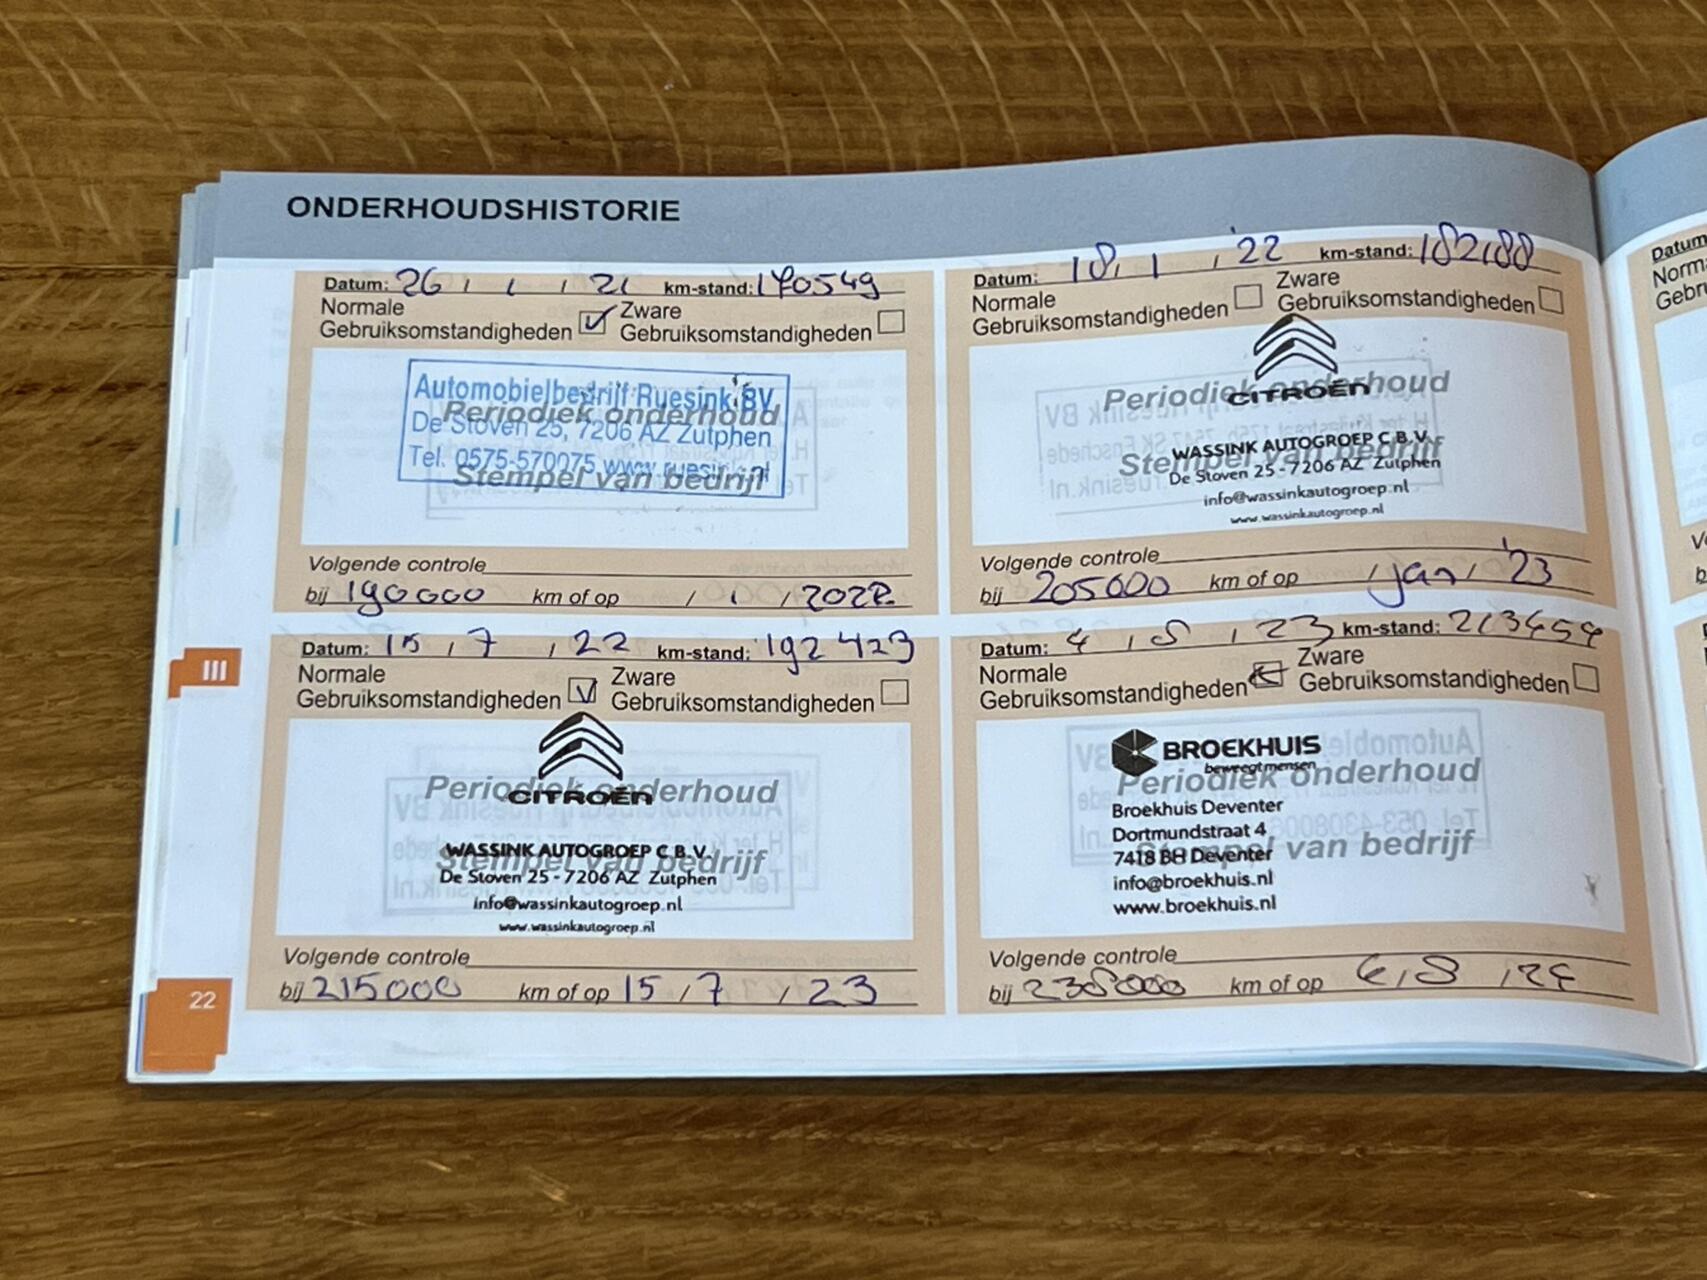 ONDERHOUDSHISTORIE
Datum: 26 / 1 / 21 km-stand: 170549
Normale
Gebruiksomstandigheden
Zware
Gebruiksomstandigheden
Automobielbedrijf Ruesink BV
Periodiek onderhoud
De Stoven 25, 7206 AZ Zutphen
Tel. 0575-570075 www.ruesink.nl
Stempel van bedrijf
Volgende controle
bij 190000 km of op / 1 / 2022
Datum: 18, 1 , '22 km-stand: 182188
Normale
Gebruiksomstandigheden
Zware
Gebruiksomstandigheden
Periodiek onderhoud
CITROËN
WASSINK AUTOGROEP C B.V.
Stempel van bedrijf
De Stoven 25 - 7206 AZ Zutphen
info@wassinkautogroep.nl
www.wassinkautogroep.nl
Volgende controle
bij 205000 km of op / jan / '23
III
Datum: 15 , 7 , 22 km-stand: 192423
Normale
Gebruiksomstandigheden
Zware
Gebruiksomstandigheden
Periodiek onderhoud
CITROËN
WASSINK AUTOGROEP C B.V.
Stempel van bedrijf
De Stoven 25 - 7206 AZ Zutphen
info@wassinkautogroep.nl
www.wassinkautogroep.nl
Volgende controle
bij 215000 km of op 15 , 7 , 23
Datum: 4 , 8 , 23 km-stand: 213454
Normale
Gebruiksomstandigheden
Zware
Gebruiksomstandigheden
BROEKHUIS
beweegt mensen
Periodiek onderhoud
Broekhuis Deventer
Dortmundstraat 4
Stempel van bedrijf
7418 BH Deventer
info@broekhuis.nl
www.broekhuis.nl
Volgende controle
bij 238000 km of op 4 , 8 , 24
22
Datum